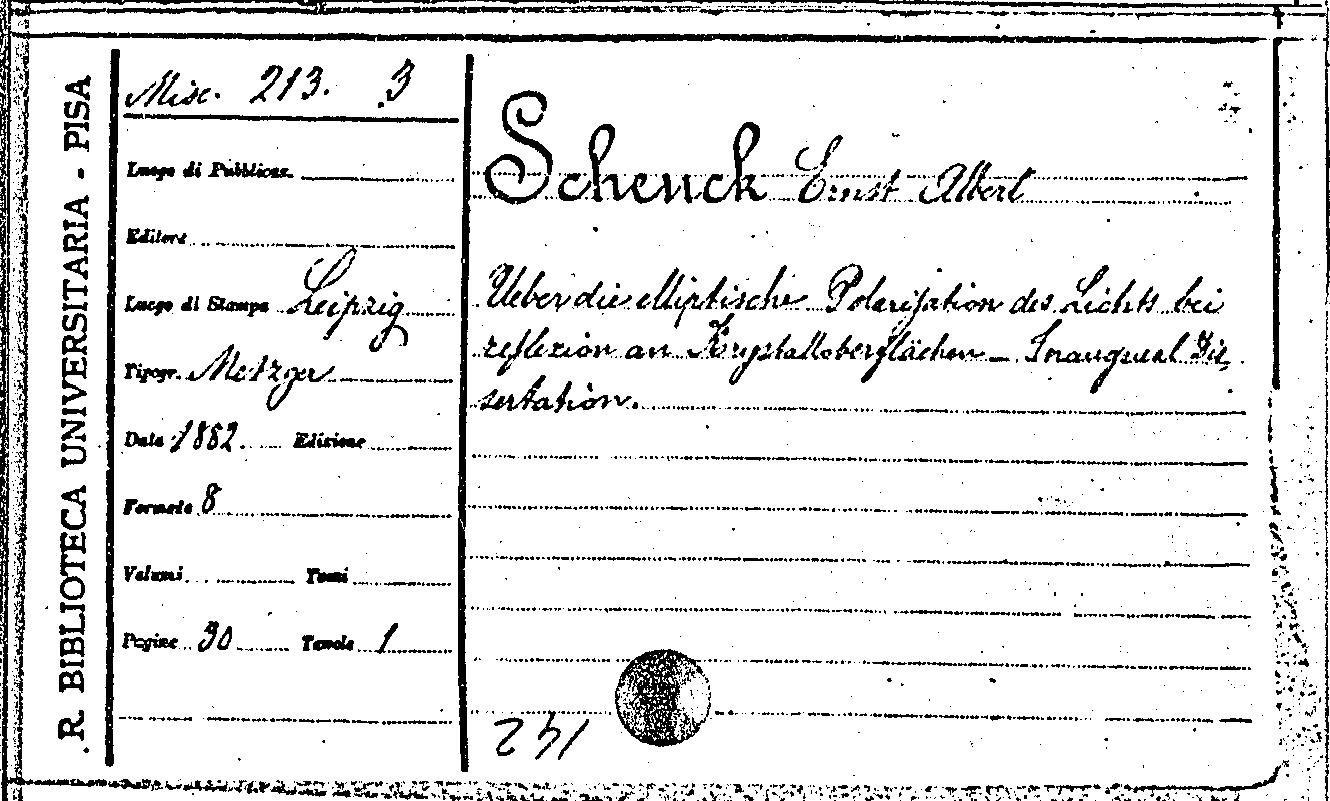 R BIBLIOTECA UNIVERSITARIA - PISA
Misc. 213. 3
Luogo di Pubblicaz.
Editore
Luogo di Stampa Leipzig
Tipogr. Metzger
Data 1882. Edizione
Formato 8
Volumi Tomi
Pagine 30 Tavole 1
Schenck Ernst Albert
Ueber die elliptische Polarisation des Lichts bei
reflexion an Krystalloberflächen — Inaugural Dis,
sertation.